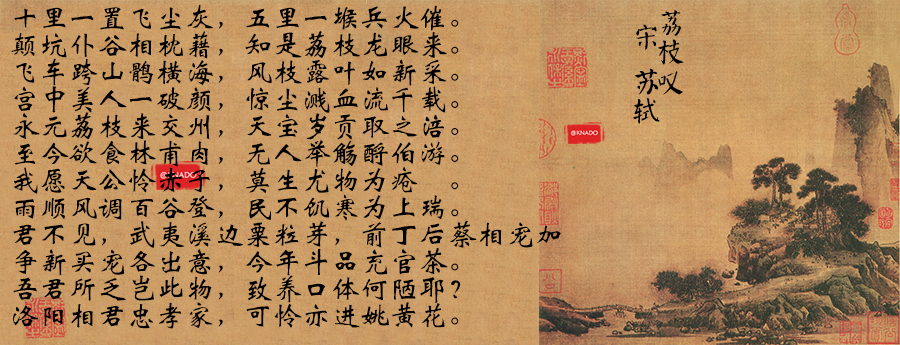 十里一置飞尘灰，五里一堠兵火催。
颠坑仆谷相枕藉，知是荔枝龙眼来。
飞车跨山鹘横海，风枝露叶如新采。
宫中美人一破颜，惊尘溅血流千载。
永元荔枝来交州，天宝岁贡取之涪。
至今欲食林甫肉，无人举觞酹伯游。
我愿天公怜赤子，莫生尤物为疮 。
雨顺风调百谷登，民不饥寒为上瑞。
君不见，武夷溪边粟粒芽，前丁后蔡相宠加
争新买宠各出意，今年斗品充官茶。
吾君所乏岂此物，致养口体何陋耶？
洛阳相君忠孝家，可怜亦进姚黄花。
荔枝叹
宋 苏轼
@KNADO
@KNADO